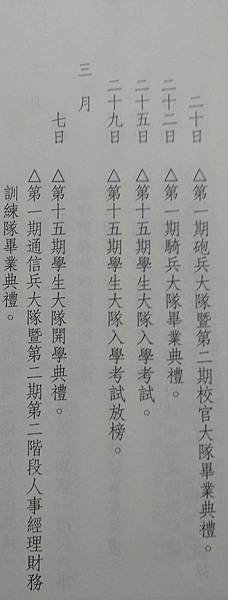 二十日　△第一期砲兵大隊暨第二期校官大隊畢業典禮。
二十二日　△第一期騎兵大隊畢業典禮。
二十五日　△第十五期學生大隊入學考試。
二十九日　△第十五期學生大隊入學考試放榜。
三月
七日　△第十五期學生大隊開學典禮。
△第一期通信兵大隊暨第二期第二階段人事經理財務
訓練隊畢業典禮。